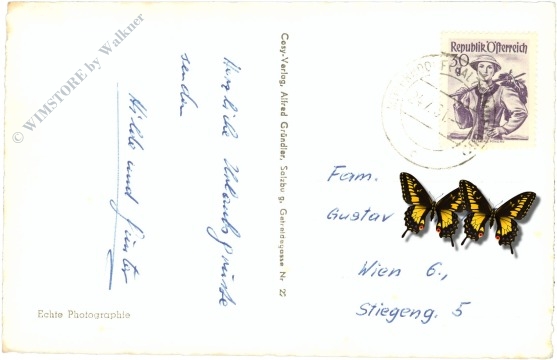 © WIMSTORE by Walkner
Herzliche Urlaubsgrüsse
senden
Hilde und Günter
Echte Photographie
Cosy-Verlag, Alfred Gründler, Salzburg, Getreidegasse Nr 25
Republik Österreich
30
g
Fam.
Gustav
Wien 6.,
Stiegeng. 5